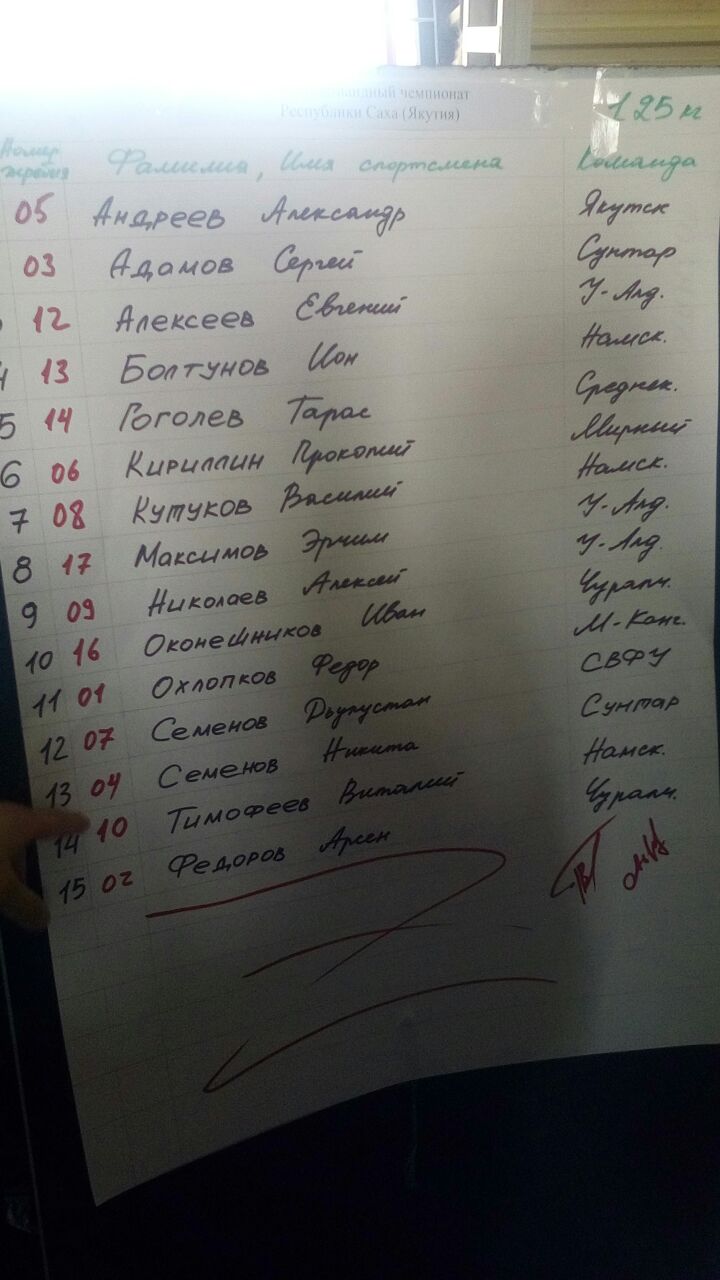 командный чемпионат
Республики Саха (Якутия)
125 кг
Номер жребия Фамилия, Имя спортсмена Команда
05 Андреев Александр Якутск
03 Адамов Сергей Сунтар
12 Алексеев Евгений У-Алд.
4 13 Болтунов Ион Намск.
5 14 Гоголев Тарас Среднек.
6 06 Кириллин Прокопий Мирный
7 08 Кутуков Василий Намск.
8 17 Максимов Эрчим У-Алд.
9 09 Николаев Алексей У-Алд.
10 16 Оконешников Иван Чурапч.
11 01 Охлопков Федор М-Канг.
12 07 Семенов Дьулустан СВФУ
13 04 Семенов Никита Сунтар
14 10 Тимофеев Виталий Намск.
15 02 Федоров Арсен Чурапч.